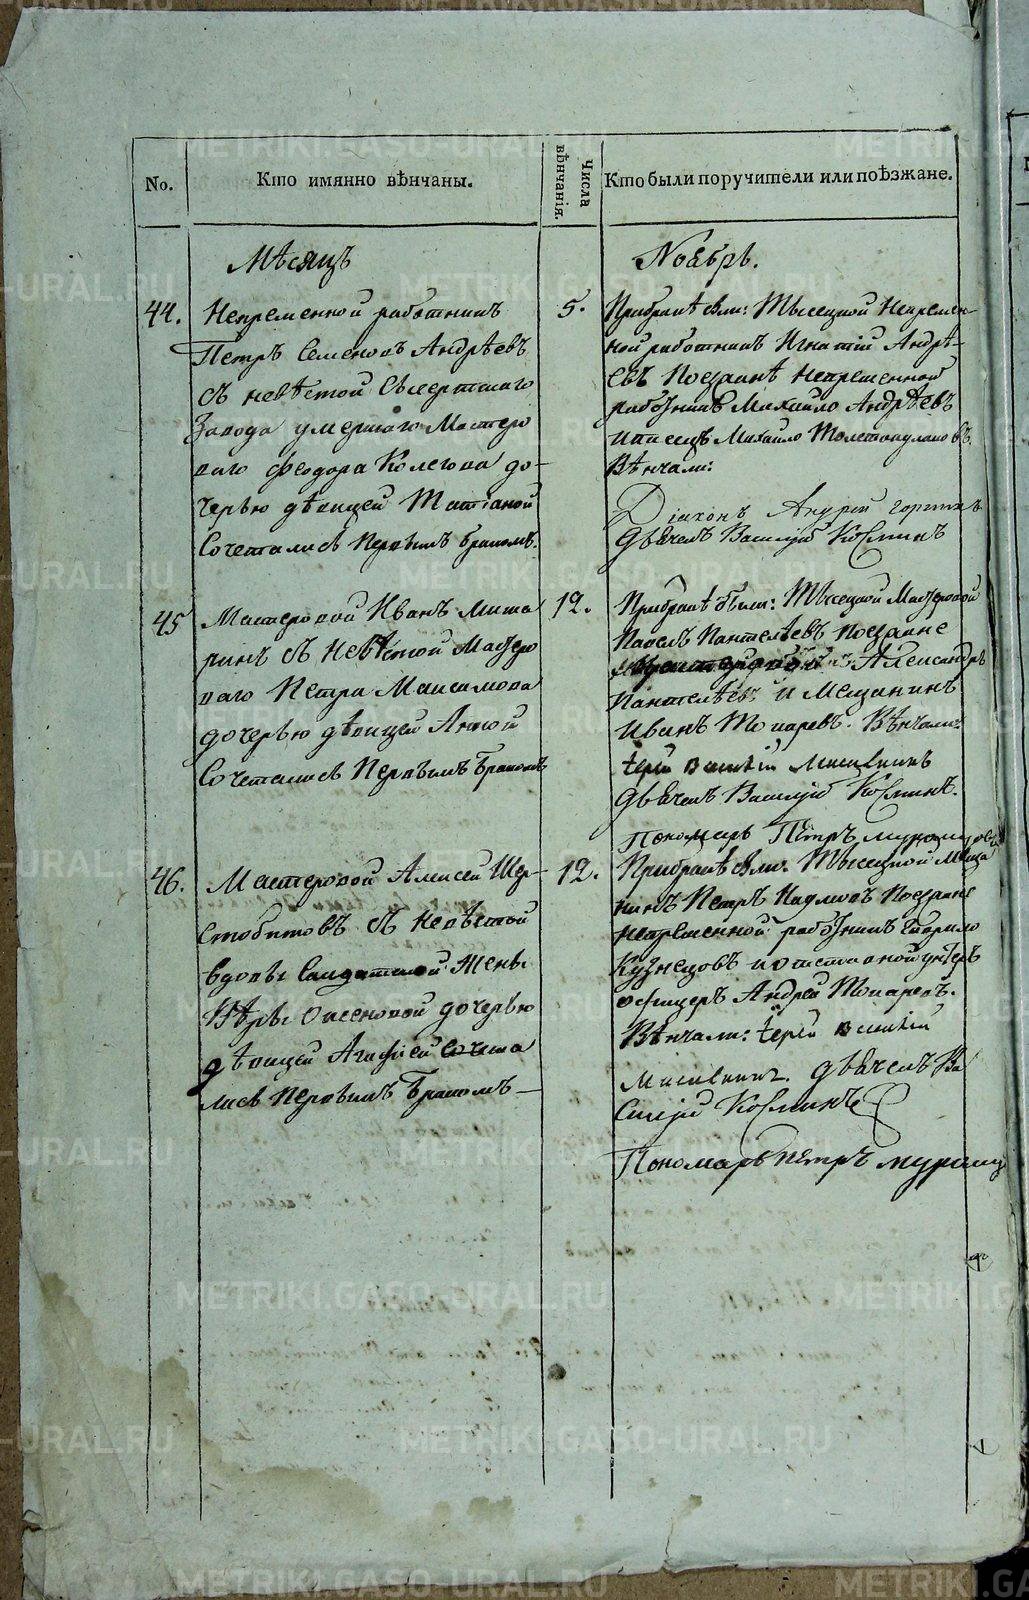 No.
Кто имянно вѣнчаны.
Числа вѣнчанія.
Кто были поручители или поѣзжане.
Мѣсяцъ
Ноябрь.
44.
Непременной работникъ
Петръ Семеновъ Андрѣевъ
съ невѣстой Сысертскаго
Завода умершаго Мастеро
ваго Феодора Колегова до-
черью дѣвицей Татіаной
Сочетались Первымъ бракомъ.
5.
При бракѣ были: Тысецкой Непремен-
ной работникъ Игнатій Андрѣ-
евъ Поезжанѣ Непременной
работникъ Михайло Андрѣевъ
Михайло Толстопуловъ.
Вѣнчали:
Діаконъ Андрей
Дьячекъ Василій Косминъ
45
Мастеровой Иванъ
съ Невѣстой Мастеро
ваго Петра Максимова
дочерью дѣвицей Анной
Сочетались Первымъ бракомъ
12.
При бракѣ были: Тысецкой Мастеровой
Павелъ Пантелѣевъ Поезжане
Александръ
Пантелѣевъ и Мещанинъ
Иванъ Токаревъ. Вѣнчали:
Іерей
Дьячекъ Василій Косминъ.
Пономарь Петръ
46.
Мастеровой Алексей Шер-
стобитовъ съ Невѣстой
вдовы Салдатской Жены
Вѣры Аксеновой дочерью
дѣвицей Агафіей Сочета
лись Первымъ бракомъ
12.
При бракѣ были: Тысецкой Меща
нинъ Петръ Поезжане
Непременной работникъ Гаврило
Кузнецовъ и отставной унтеръ
офицеръ Андрей Токаревъ.
Вѣнчали: Іерей
Дьячекъ Ва
силій Косминъ
Пономарь Петръ
METRIKI.GASO-URAL.RU